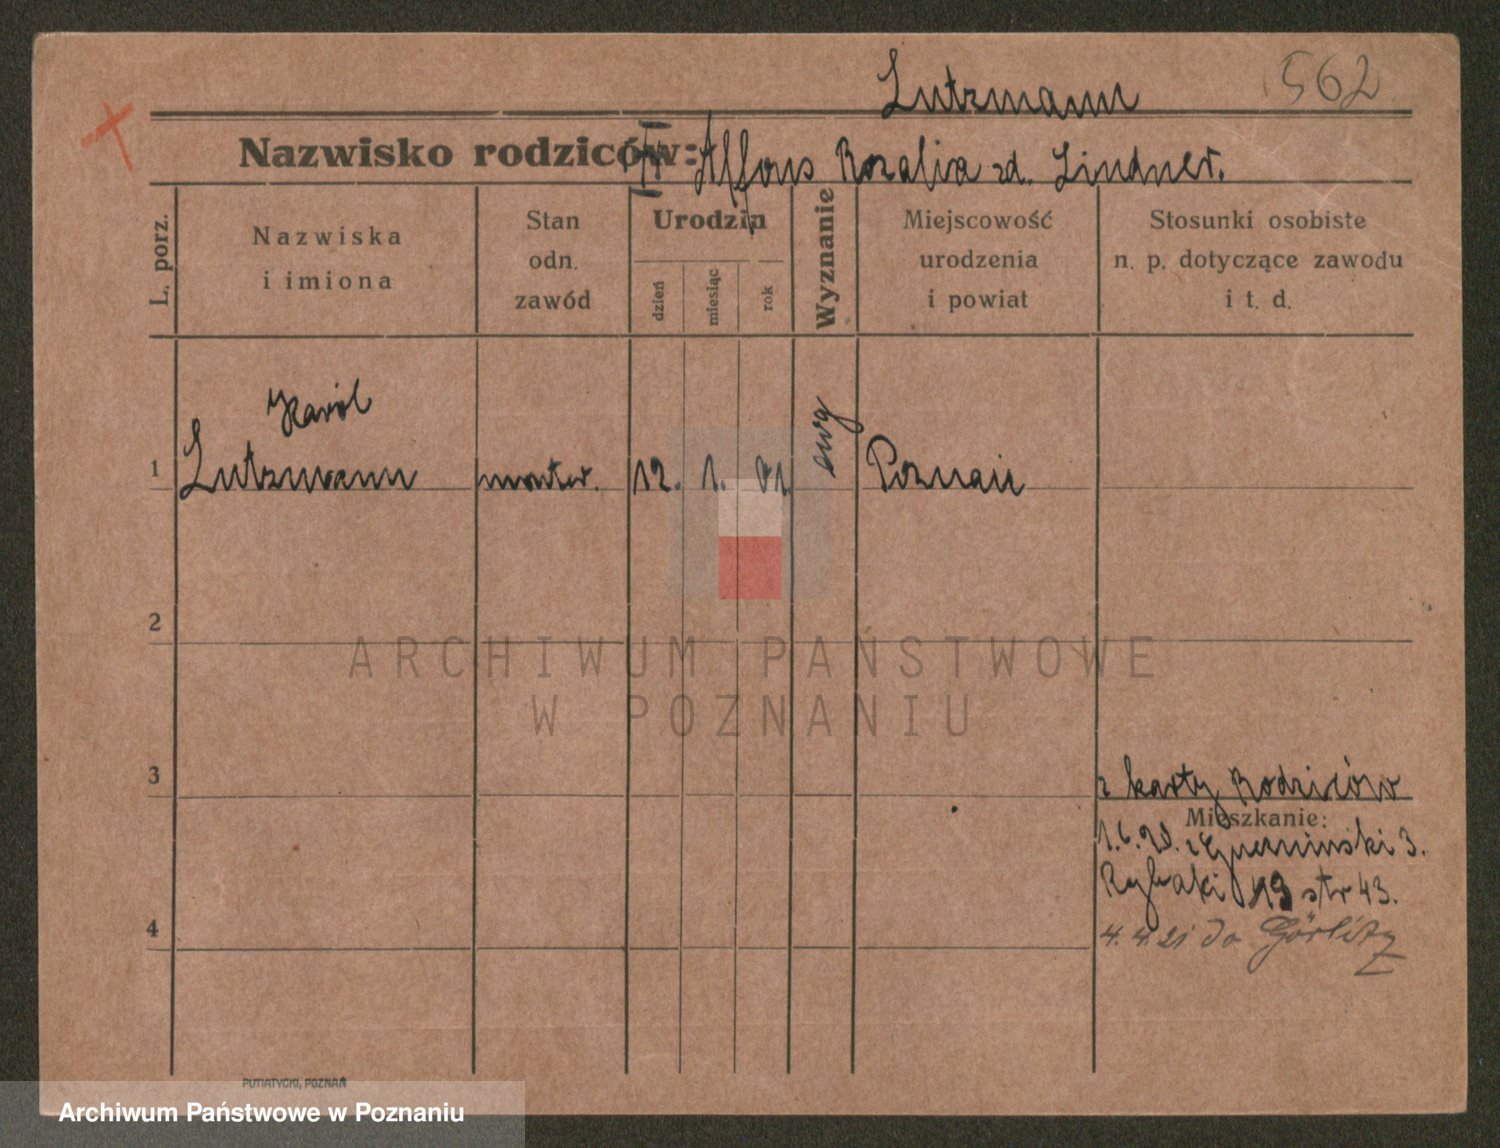 Lutzmann
562
Nazwisko rodziców: Alfons Rozalia zd. Lindner.
L. porz.
Nazwiska
i imiona
Stan
odn.
zawód
Urodzin
dzień
miesiąc
rok
Wyznanie
Miejscowość
urodzenia
i powiat
Stosunki osobiste
n. p. dotyczące zawodu
i t. d.
Karól
1 Lutzmann monter. 12. 1. 01. ewg Poznań
2
ARCHIWUM PAŃSTWOWE
W POZNANIU
3
z karty Rodziców
Mieszkanie:
1.6.20. 3.
Rybaki 19 str 43.
4
4.4.21 do Görlitz
PUTIATYCKI, POZNAŃ
Archiwum Państwowe w Poznaniu